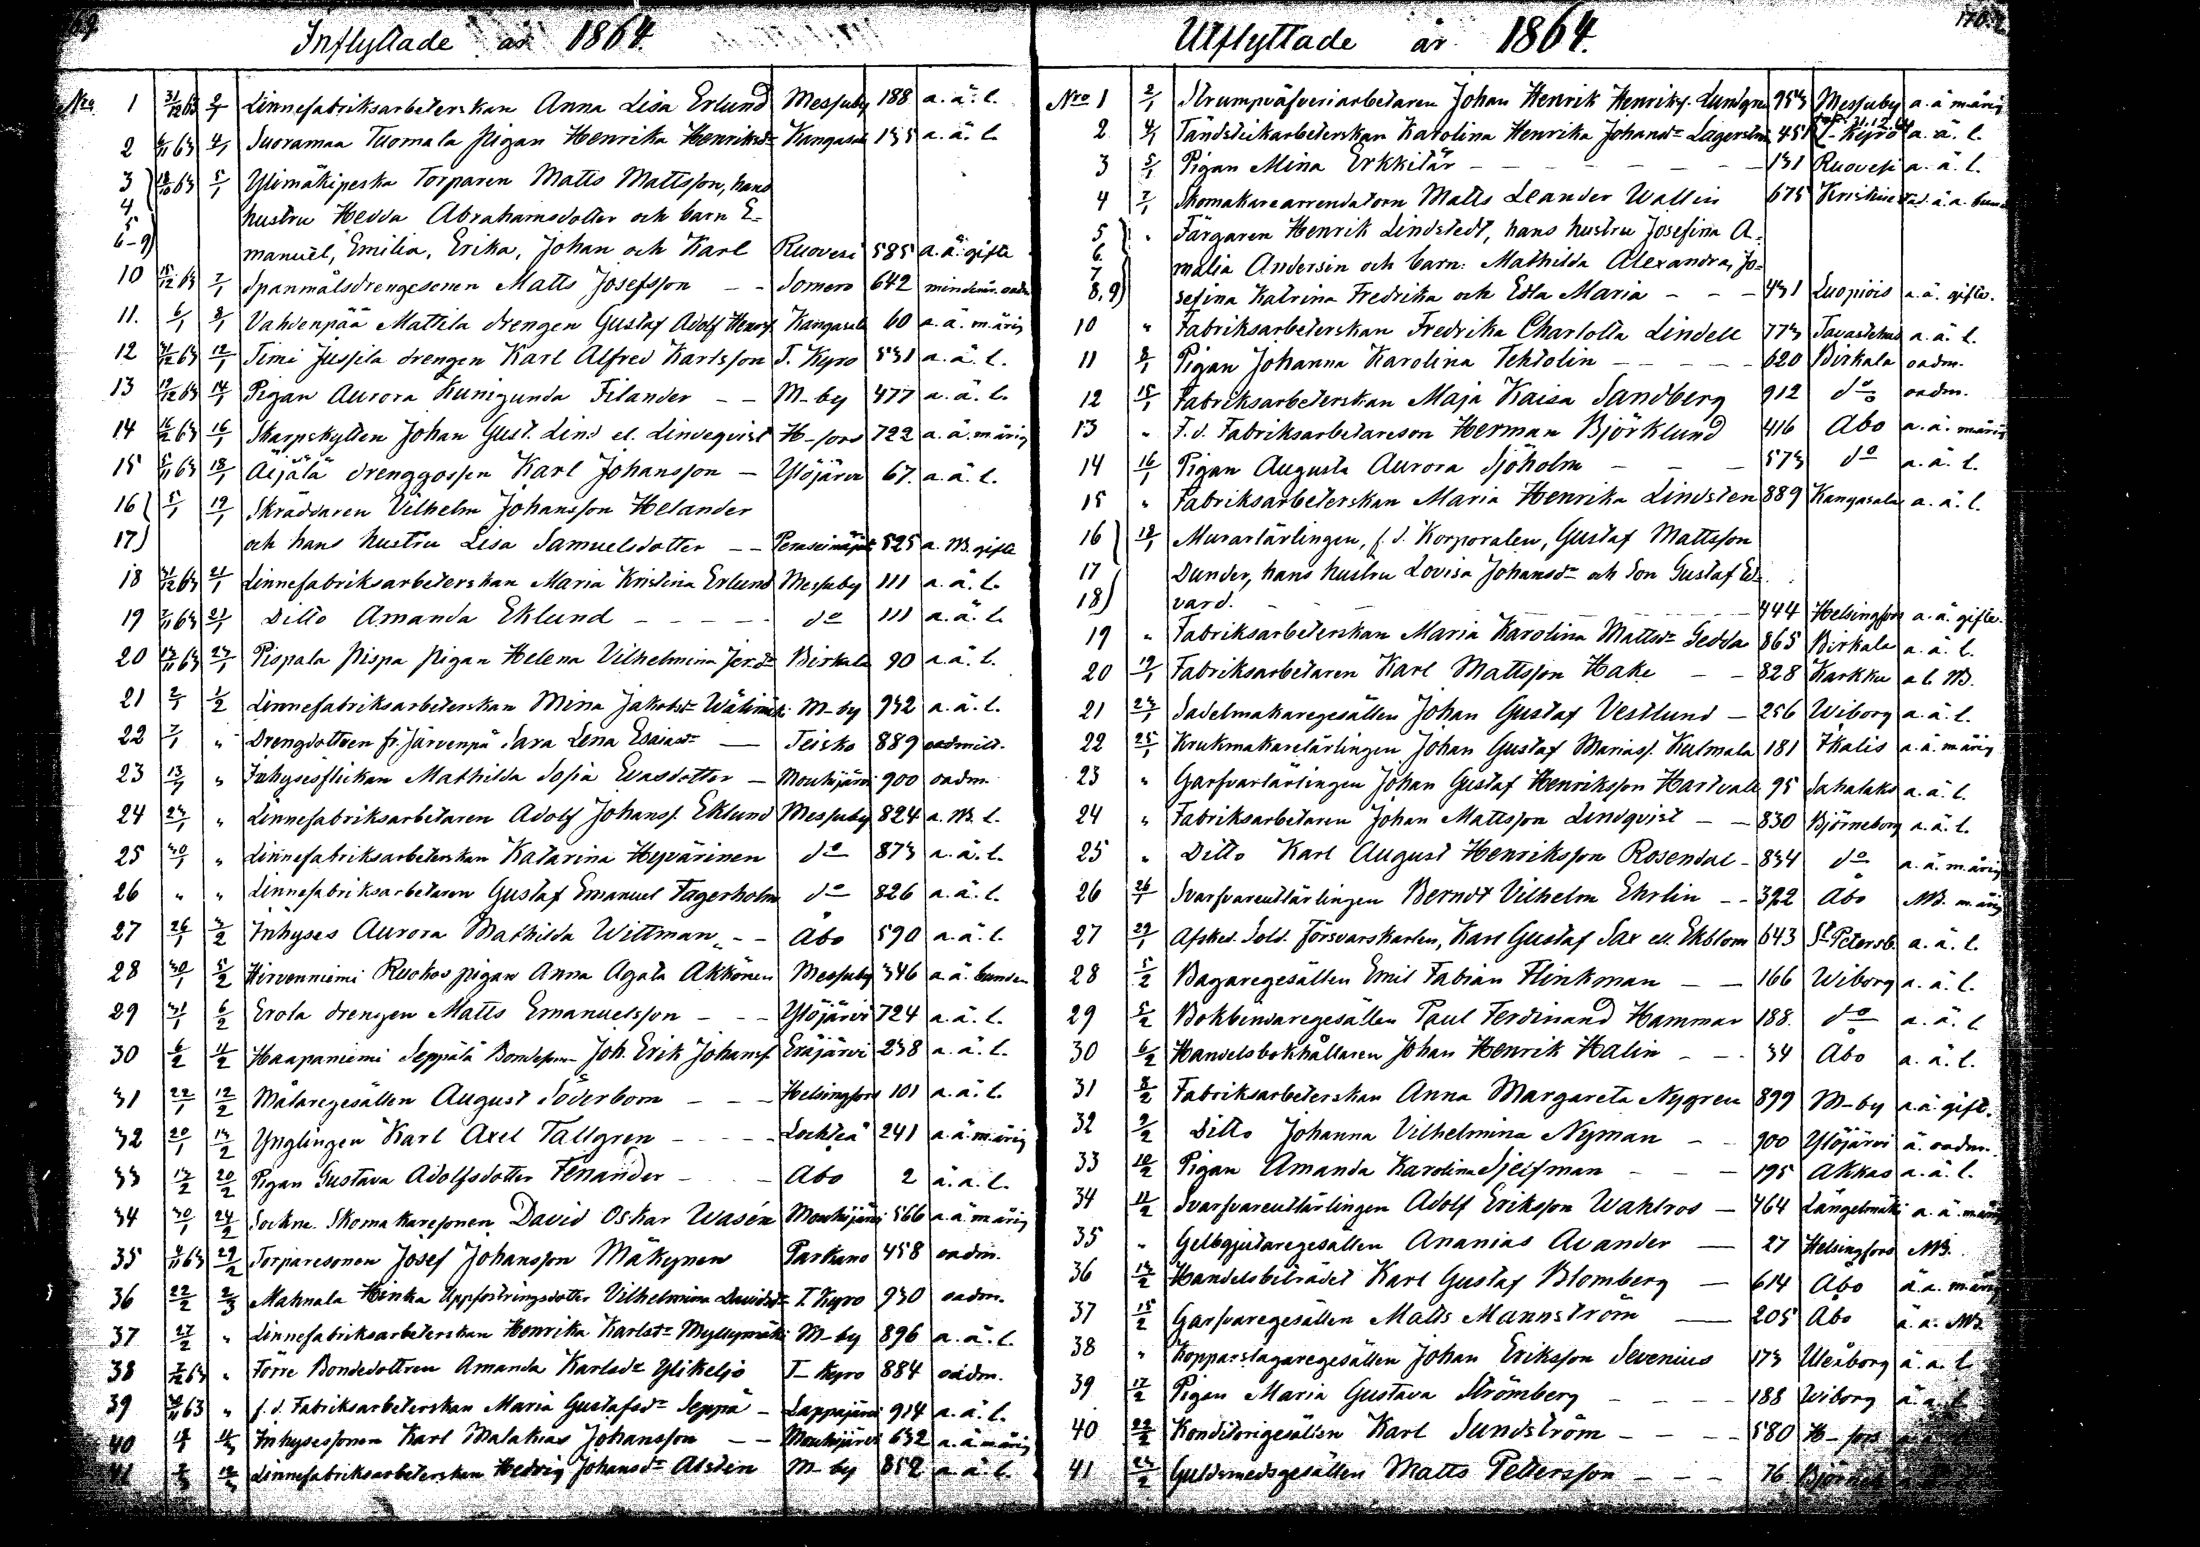 Inflyttade år 1864.
Nro 1 31/12 63 2/1 Linnefabriksarbeterskan Anna Lisa Erlund Messuby 188 a. ä. l.
2 6/11 63 4/1 Suoramaa Tuomala pigan Henrika Henriksdr Kangasala 135 a. ä. l.
3 18/10 63 5/1 Ylimäkipeska Torparen Matts Mattsson, hans
4 hustru Hedda Abrahamsdotter och barn E-
5
6-9) manuël, Emilia, Erika, Johan och Karl Ruovesi 585 a. ä. gifte
10 15/12 63 7/1 Spanmålsdrengesonen Matts Josefsson Somero 642
11. 6/1 8/1 Vahdenpää Mattila drengen Gustaf Adolf Henrs. Kangasala 60 a. ä. m. ärig
12 31/12 63 12/1 Timi Jussila drengen Karl Alfred Karlsson T. Kyro 531 a. ä. l.
13 19/12 63 14/1 Pigan Aurora Kunigunda Filander M-by 477 a. ä. l.
14 16/12 63 16/1 Skarpskytten Johan Gust. Lind el. Lindeqvist H-fors 722 a. ä. m. ärig
15 5/11 63 18/1 Äijälä drenggossen Karl Johansson Ylöjärvi 67. a. ä. l.
16 5/1 19/1 Skräddaren Vilhelm Johansson Helander
17) och hans hustru Lisa Samuelsdotter 525 a. NB. gifte
18 31/12 63 21/1 Linnefabriksarbeterskan Maria Kristina Erlund Messuby 111 a. ä. l.
19 7/11 63 21/1 Ditto Amanda Eklund do 111 a. ä. l.
20 13/11 63 23/1 Pispala Pispa pigan Helena Vilhelmina Jerdr Birkala 90 a. ä. l.
21 2/1 1/2 Linnefabriksarbeterskan Mina Jakobsdr M-by 932 a. ä. l.
22 7/1 " Drengdottren fr. Järvenpä Sara Lena Esaiasdr Teisko 889 oadmitt.
23 13/1 " Inhysesflickan Mathilda Sofia Evasdotter Mouhijärvi 900 oadm.
24 23/1 " Linnefabriksarbetaren Adolf Johanss. Eklund Messuby 824 a. NB. l.
25 30/1 " Linnefabriksarbeterskan Katarina Hyvärinen do 873 a. ä. l.
26 " " Linnefabriksarbetaren Gustaf Emanuel Fagerholm do 826 a. ä. l.
27 26/1 3/2 Inhyses Aurora Mathilda Wittman Åbo 590 a. ä. l.
28 30/1 5/2 Hirvenniemi Ruokos pigan Anna Agata Akkönen Messuby 346 a. ä. bunden
29 31/1 6/2 Erola drengen Matts Emanuelsson Ylöjärvi 724 a. ä. l.
30 6/2 11/2 Haapaniemi Seppälä Bondesonen Joh. Erik Johanss. Eräjärvi 238 a. ä. l.
31 22/1 12/2 Målaregesällen August Söderbom Helsingfors 101 a. ä. l.
32 20/1 13/2 Ynglingen Karl Axel Tallgren Lochteå 241 a. ä. m. ärig
33 13/2 20/2 Pigan Gustava Adolfsdotter Fenander Åbo 2 ä. a. l.
34 30/1 24/2 Sockne Skomakaresonen David Oskar Wasén Mouhijärvi 566 a. ä. m. ärig
35 8/11 63 29/2 Torparesonen Josef Johansson Mäkynen Parkano 458 oadm.
36 22/2 2/3 Mahnala Hinka Uppfostringsdotter Vilhelmina Davidsdr T. Kyro 930 oadm.
37 27/2 " Linnefabriksarbeterskan Henrika Karlsdr Myllymäki M-by 896 a. ä. l.
38 7/12 63 " Förre Bondedottren Amanda Karlsdr Ylikeljo T-Kyro 884 oadm.
39 30/11 63 " f. d. Fabriksarbeterskan Maria Gustafsdr Seppä Lappajärvi 914 a. ä. l.
40 Inhysessonen Karl Malakias Johansson Mouhijärvi 632 a. ä. m. ärig
41 Linnefabriksarbeterskan Hedvig Johansdr Alstén M-by 852 a. ä. l.
Utflyttade år 1864.
Nro 1 2/1 Strumpväfveriarbetaren Johan Henrik Henrikss. Lundgren 953 Messuby a. ä. m. ärig
2 4/1 Tändstickarbeterskan Karolina Henrika Johansdr Lagerström 451 T-Kyrö a. ä. l.
3 5/1 Pigan Mina Erkkilär 131 Ruovesi a. ä. l.
4 7/1 Skomakarearrendatorn Matts Leander Wallin 675 Kristinestad. ä. a. bund
5 " Färgaren Henrik Lindstedt, hans hustru Josefina A-
6 malia Andersin och barn: Mathilda Alexandra, Jo-
7
8, 9) sefina Katrina Fredrika och Edla Maria 431 Luopiois a. ä. gifte.
10 " Fabriksarbeterskan Fredrika Charlotta Lindell 773 Tavastehus a. ä. l.
11 8/1 Pigan Johanna Karolina Tektolin 620 Birkala oadm.
12 15/1 Fabriksarbeterskan Maja Kaisa Sandberg 912 do oadm.
13 " F. d. Fabriksarbetareson Herman Björklund 416 Åbo a. ä. m. ärig
14 16/1 Pigan Augusta Aurora Sjöholm 573 do a. ä. l.
15 " Fabriksarbeterskan Maria Henrika Lindsten 889 Kangasala a. ä. l.
16 18/1 Murarlärlingen, f. d. Korporalen, Gustaf Mattsson
17 Dunder, hans hustru Lovisa Johansdr och Son Gustaf Ed-
18) vard. 444 Helsingfors a. ä. gifte.
19 " Fabriksarbeterskan Maria Karolina Mattsdr Gedda 865 Birkala a. ä. l.
20 19/1 Fabriksarbetaren Karl Mattsson Hake 828 Karkku a l. NB.
21 23/1 Sadelmakaregesällen Johan Gustaf Vestlund 256 Wiborg a. ä. l.
22 25/1 Krukmakarelärlingen Johan Gustaf Mariass. Kulmala 181 Ikalis a. ä. m. ärig
23 " Garfvarlärlingen Johan Gustaf Henriksson Hartvall 95 Sahalaks a. ä. l.
24 " Fabriksarbetaren Johan Mattsson Lindqvist 830 Björneborg a. ä. l.
25 " Ditto Karl August Henriksson Rosendal 834 do a. ä. m. ärig
26 26/1 Svarfvareutlärlingen Berndt Vilhelm Ehrlin 392 Åbo NB. m. ärig
27 29/1 Afsked. Sold. Försvarskarlen, Karl Gustaf Sax ell Ekblom 643 St Petersb. a. ä. l.
28 5/2 Bagaregesällen Emil Fabian Flinkman 166 Wiborg a. ä. l.
29 5/2 Bokbindaregesällen Paul Ferdinand Hammar 188. do a. ä. l
30 6/2 Handelsbokhållaren Johan Henrik Halin 34 Åbo a. ä. l.
31 8/2 Fabriksarbeterskan Anna Margareta Nygren 899 M-by a. ä. gift.
32 9/2 Ditto Johanna Vilhelmina Nyman 900 Ylöjärvi ä. oadm.
33 10/2 Pigan Amanda Karolina Sjelfman 195 Akkas a. ä. l.
34 11/2 Svarfvareutlärlingen Adolf Eriksson Wahlros 464 Längelmäki a. ä. m. ärig
35 " Gelbgjutaregesällen Ananias Avander 27 Helsingfors NB.
36 13/2 Handelsbiträdet Karl Gustaf Blomberg 614 Åbo ä. a. m. ärig
37 15/2 Garfvaregesällen Matts Mannström 205 Åbo ä. a. NB.
38 " Kopparslagaregesällen Johan Eriksson Sevenius 173 Uleåborg ä. a. l
39 17/2 Pigan Maria Gustava Strömberg 188 Wiborg ä. a. l
40 22/2 Konditorigesällen Karl Sundström 580 H-fors
41 23/2 Guldsmedsgesällen Matts Pettersson 76